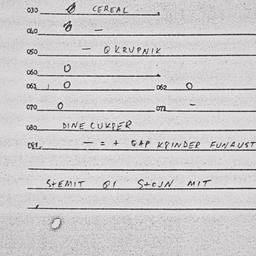 030 CEREAL
040 -
050 - QKRUPNIK
060 0
061 0 062 0
070 0 072 -
080 DINE CUKPER
081 - = + GAP KPINDER FUNAUST
STEMIT QI STOJN MIT